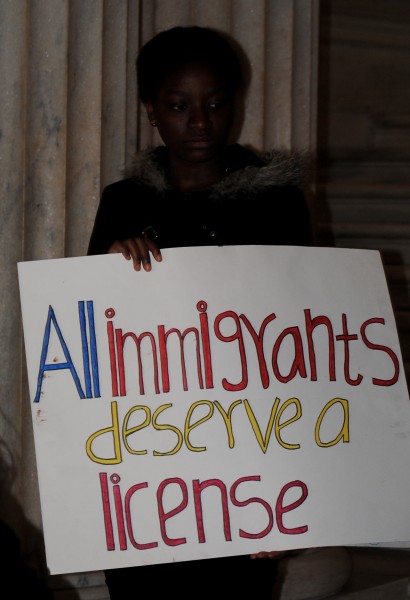 All immigrants
deserve a
license